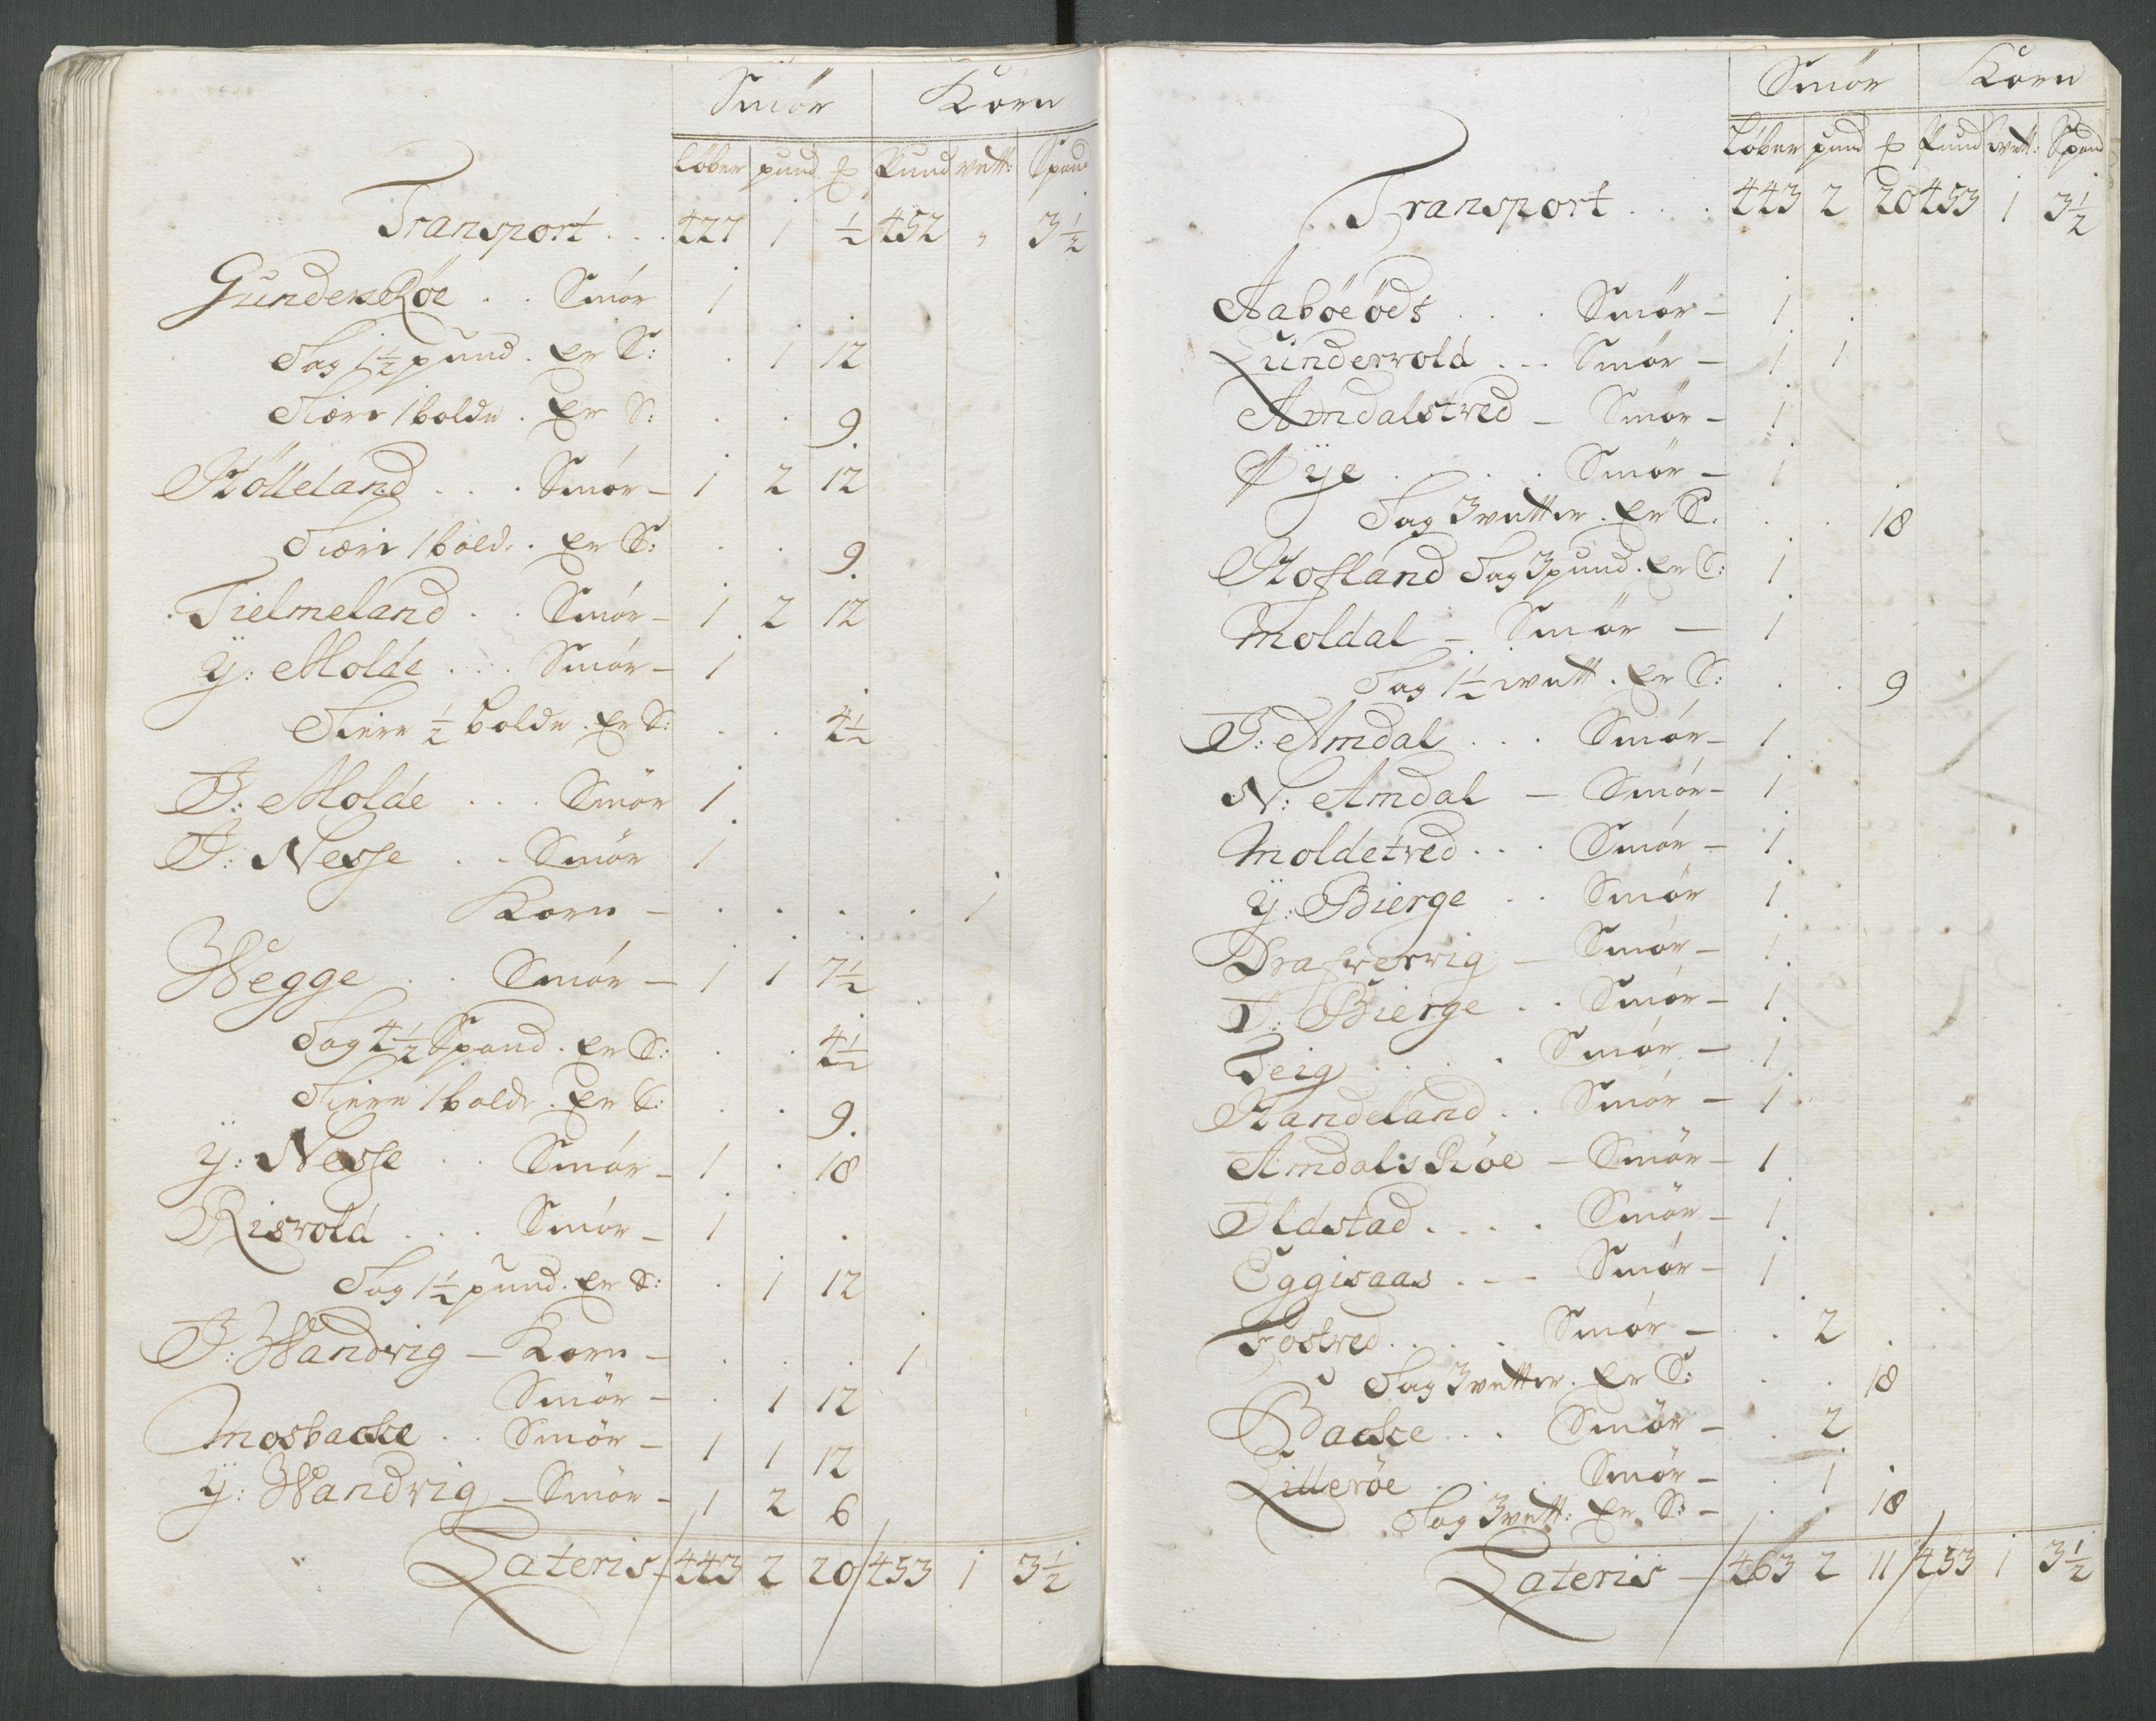 Smör Korn
Löber pund ℔ Pund vett: Spand
Transport . . . 427 1 ½ 452 „ 3½
GunderRöe . . Smör 1
Sag 1½ pund . er S: . 1 12
Tiære 1 bolde . er S: . . 9.
Hölleland . . . Smör – 1 2 12
Tiære 1 bold: . er S: . . 9.
Tielmeland . . Smör – 1 2 12
Y: Molde . . . Smör – 1
Tiere ½ bolde . er S: . . 4½
I: Molde . . . Smör 1
I: Nesse . . Smör 1
Korn – . . . . 1
Wegge . . Smör – 1 1 7½
Sag 4½ Spand . er S: . . 4½
Tiere 1 bold: . er S: . . 9.
Y: Nesse . . Smör – 1 . 18
Risvold . . . Smör – 1
Sag 1½ pund . er S: . 1 12
I: Wandvig – Korn – . . . 1
Smör – . 1 12
Mosbacke . . Smör – 1 1 12
Y: Wandvig – Smör – 1 2 6
Lateris – 443 2 20 453 1 3½
Smör Korn
Löber pund ℔ Pund vett: Spand
Transport . . . 443 2 20 453 1 3½
Aaböeöds . . . Smör – 1
Lundervold . . – Smör – 1 1
Amdalstred – Smör – 1
Øye . . . . Smör – 1
Sag 3 vetter . er S. . . 18
Hofland Sag 3 pund . er S: 1
Moldal – Smör – 1
Sag 1½ vett . er S: . . 9
I: Amdal . . . Smör – 1
N: Amdal – Smör – 1
Moldetred . . . Smör – 1
Y: Bierge . . Smör 1
Smör – 1
I: Bierge . . Smör – 1
Teig . . . . Smör – 1
Handeland . . Smör – 1
AmdalsRöe – Smör – 1
Ildstad . . . . Smör – 1
Eggisaas . – – Smör – 1
Fostred . . . . Smör – . 2
Sag 3 vetter . er S: . . 18
Backe . . . Smör – . 2
Lilleröe . . . Smör – . 1
Sag 3 vett: er S: – . . 18
Lateris – 463 2 11 453 1 3½